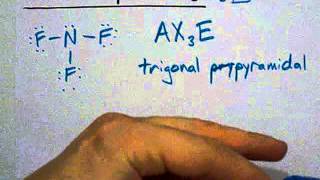 F-N-F
F
AX₃E
trigonal pyramidal